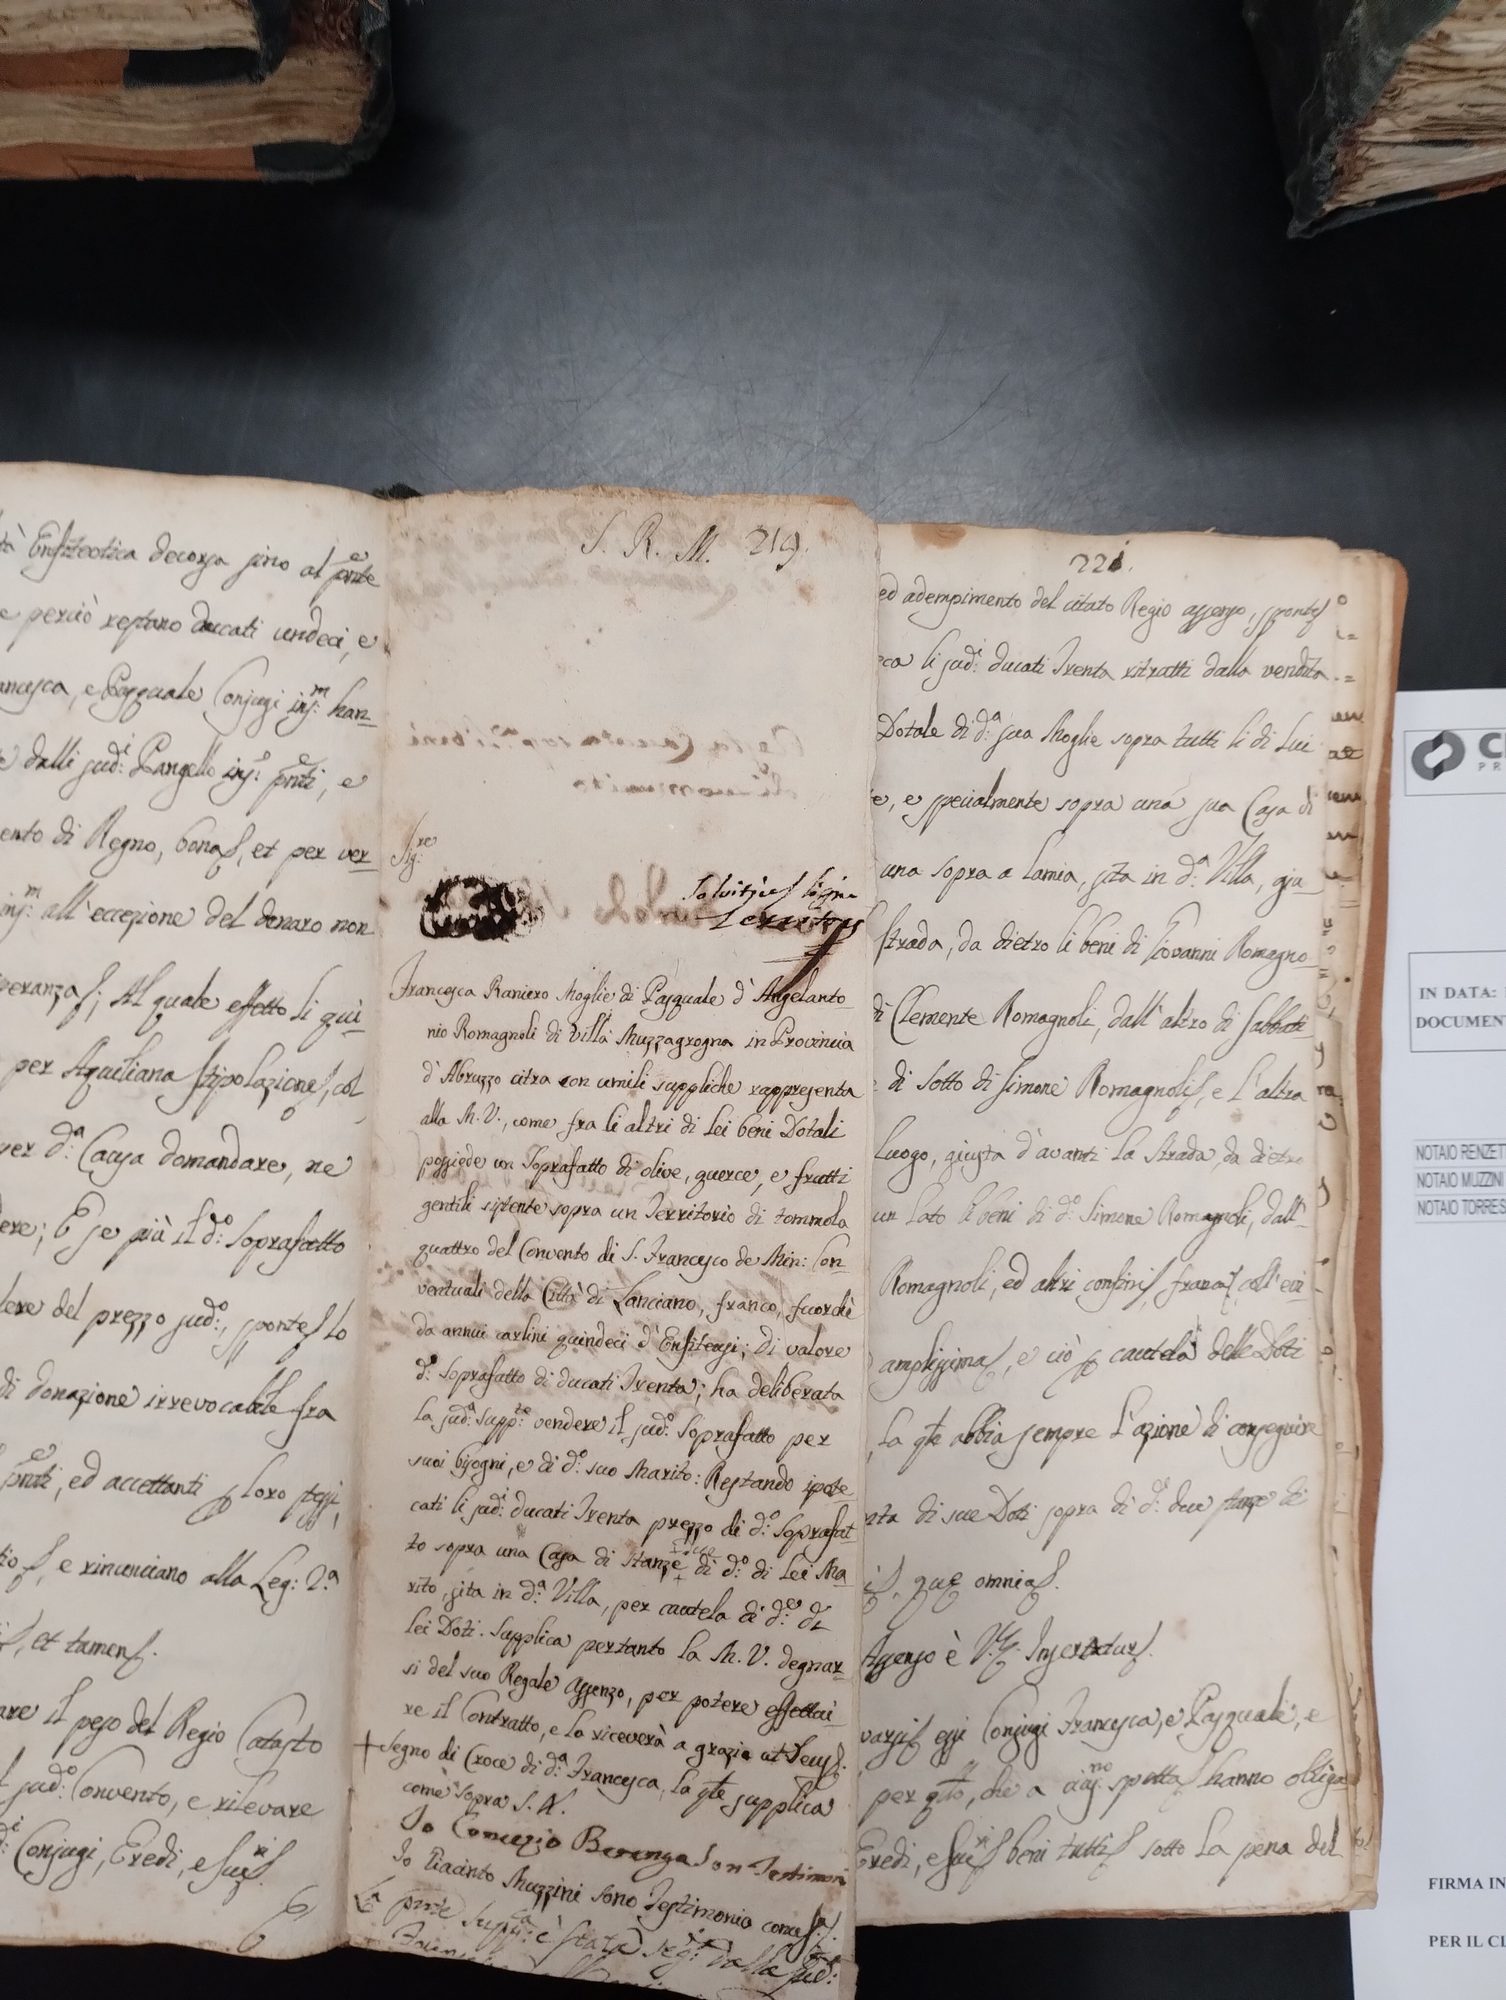 tà Enfiteotica decorsa sino al pnte
e perciò restano ducati undeci, e
ancesca, e Pasquale Conjugi insm: han-
e dalli sudi: Pangello insº: pnti, e
ento di Regno, bona, et per ver-
insm: all'eccezione del denaro non
peranza; Al quale effetto li qui-
per Aquiliana stipolazione, col
per d.ª Causa domandare, ne
dere; E se più il dº: Soprafatto
lere del prezzo sudº:, sponte lo
di donazione irrevocabile fra
pnti, ed accettanti loro stessi,
e rinunciano alla Leg: 2.ª
et tamen.
are il peso del Regio Catasto
sudº: Convento, e rilevare
Conjugi, Eredi, e sui
S. R. M. 219.
Sigre:
Francesca Raniero Moglie di Pasquale d'Angelanto-
nio Romagnoli di Villa Muzzagrogna in Provincia
d'Abruzzo citra con umili suppliche rappresenta
alla M. V., come fra li altri di Lei beni Dotali
possiede un Soprafatto di olive, querce, e frutti
gentili sistente sopra un Territorio di tommola
quattro del Convento di S. Francesco de Min: Con-
ventuali della Città di Lanciano, franco, fuorchè
da annui carlini quindeci d'Enfiteusi; di valore
dº: Soprafatto di ducati Trenta; ha deliberata
la sudª: suppte: vendere il sudº: Soprafatto per
suoi bisogni, e di dº: suo Marito: Restando ipote-
cati li sudi: ducati Trenta prezzo di dº: Soprafat-
to sopra una Casa di Stanze due di dº: di Lei Ma-
rito, sita in dª: Villa, per cautela di de: di
Lei Doti. Supplica pertanto la M. V. degnar-
si del suo Regale Assenzo, per potere effettui-
re il Contratto, e lo riceverà a grazia ut Deus.
+ Segno di Croce di dª: Francesca, la qle supplica
come sopra S. N.
Io Comezio Berenga Son Testimonio
Io Giacinto Muzzini sono Testimonio come sª.
La pnte suppca: è stata segta: dalla sud:
221.
ed adempimento del citato Regio assenso, sponte
eca li sudi: ducati Trenta ritratti dalla vendita
Dotale di dª: sua Moglie sopra tutti li di Lui
e, e specialmente sopra una sua Casa di
una sopra a lamia, sita in dª: Villa, giu-
strada, da dietro li beni di Giovanni Romagno-
di Clemente Romagnoli, dall'altro di Sabbati-
e di sotto di Simone Romagnoli, e l'altra
luogo, giusta d'avanti la Strada, da dietro
un lato li beni di dº: Simone Romagnoli, dall'
Romagnoli, ed altri confini, franca, coll'evi-
amplissima, e ciò per cautela delle Doti
la qle abbia sempre l'azione di conseguire
nta di sue Doti sopra di de: due stanze di
que omnia.
Assenso è V.Z. Inseratur.
varsi essi Conjugi Francesca, e Pasquale, e
per qto, che a ciasno: spetta hanno obliga-
Eredi, e sui beni tutti sotto la pena del
IN DATA:
DOCUMEN
NOTAIO RENZET
NOTAIO MUZZINI
NOTAIO TORRES
FIRMA IN
PER IL CL